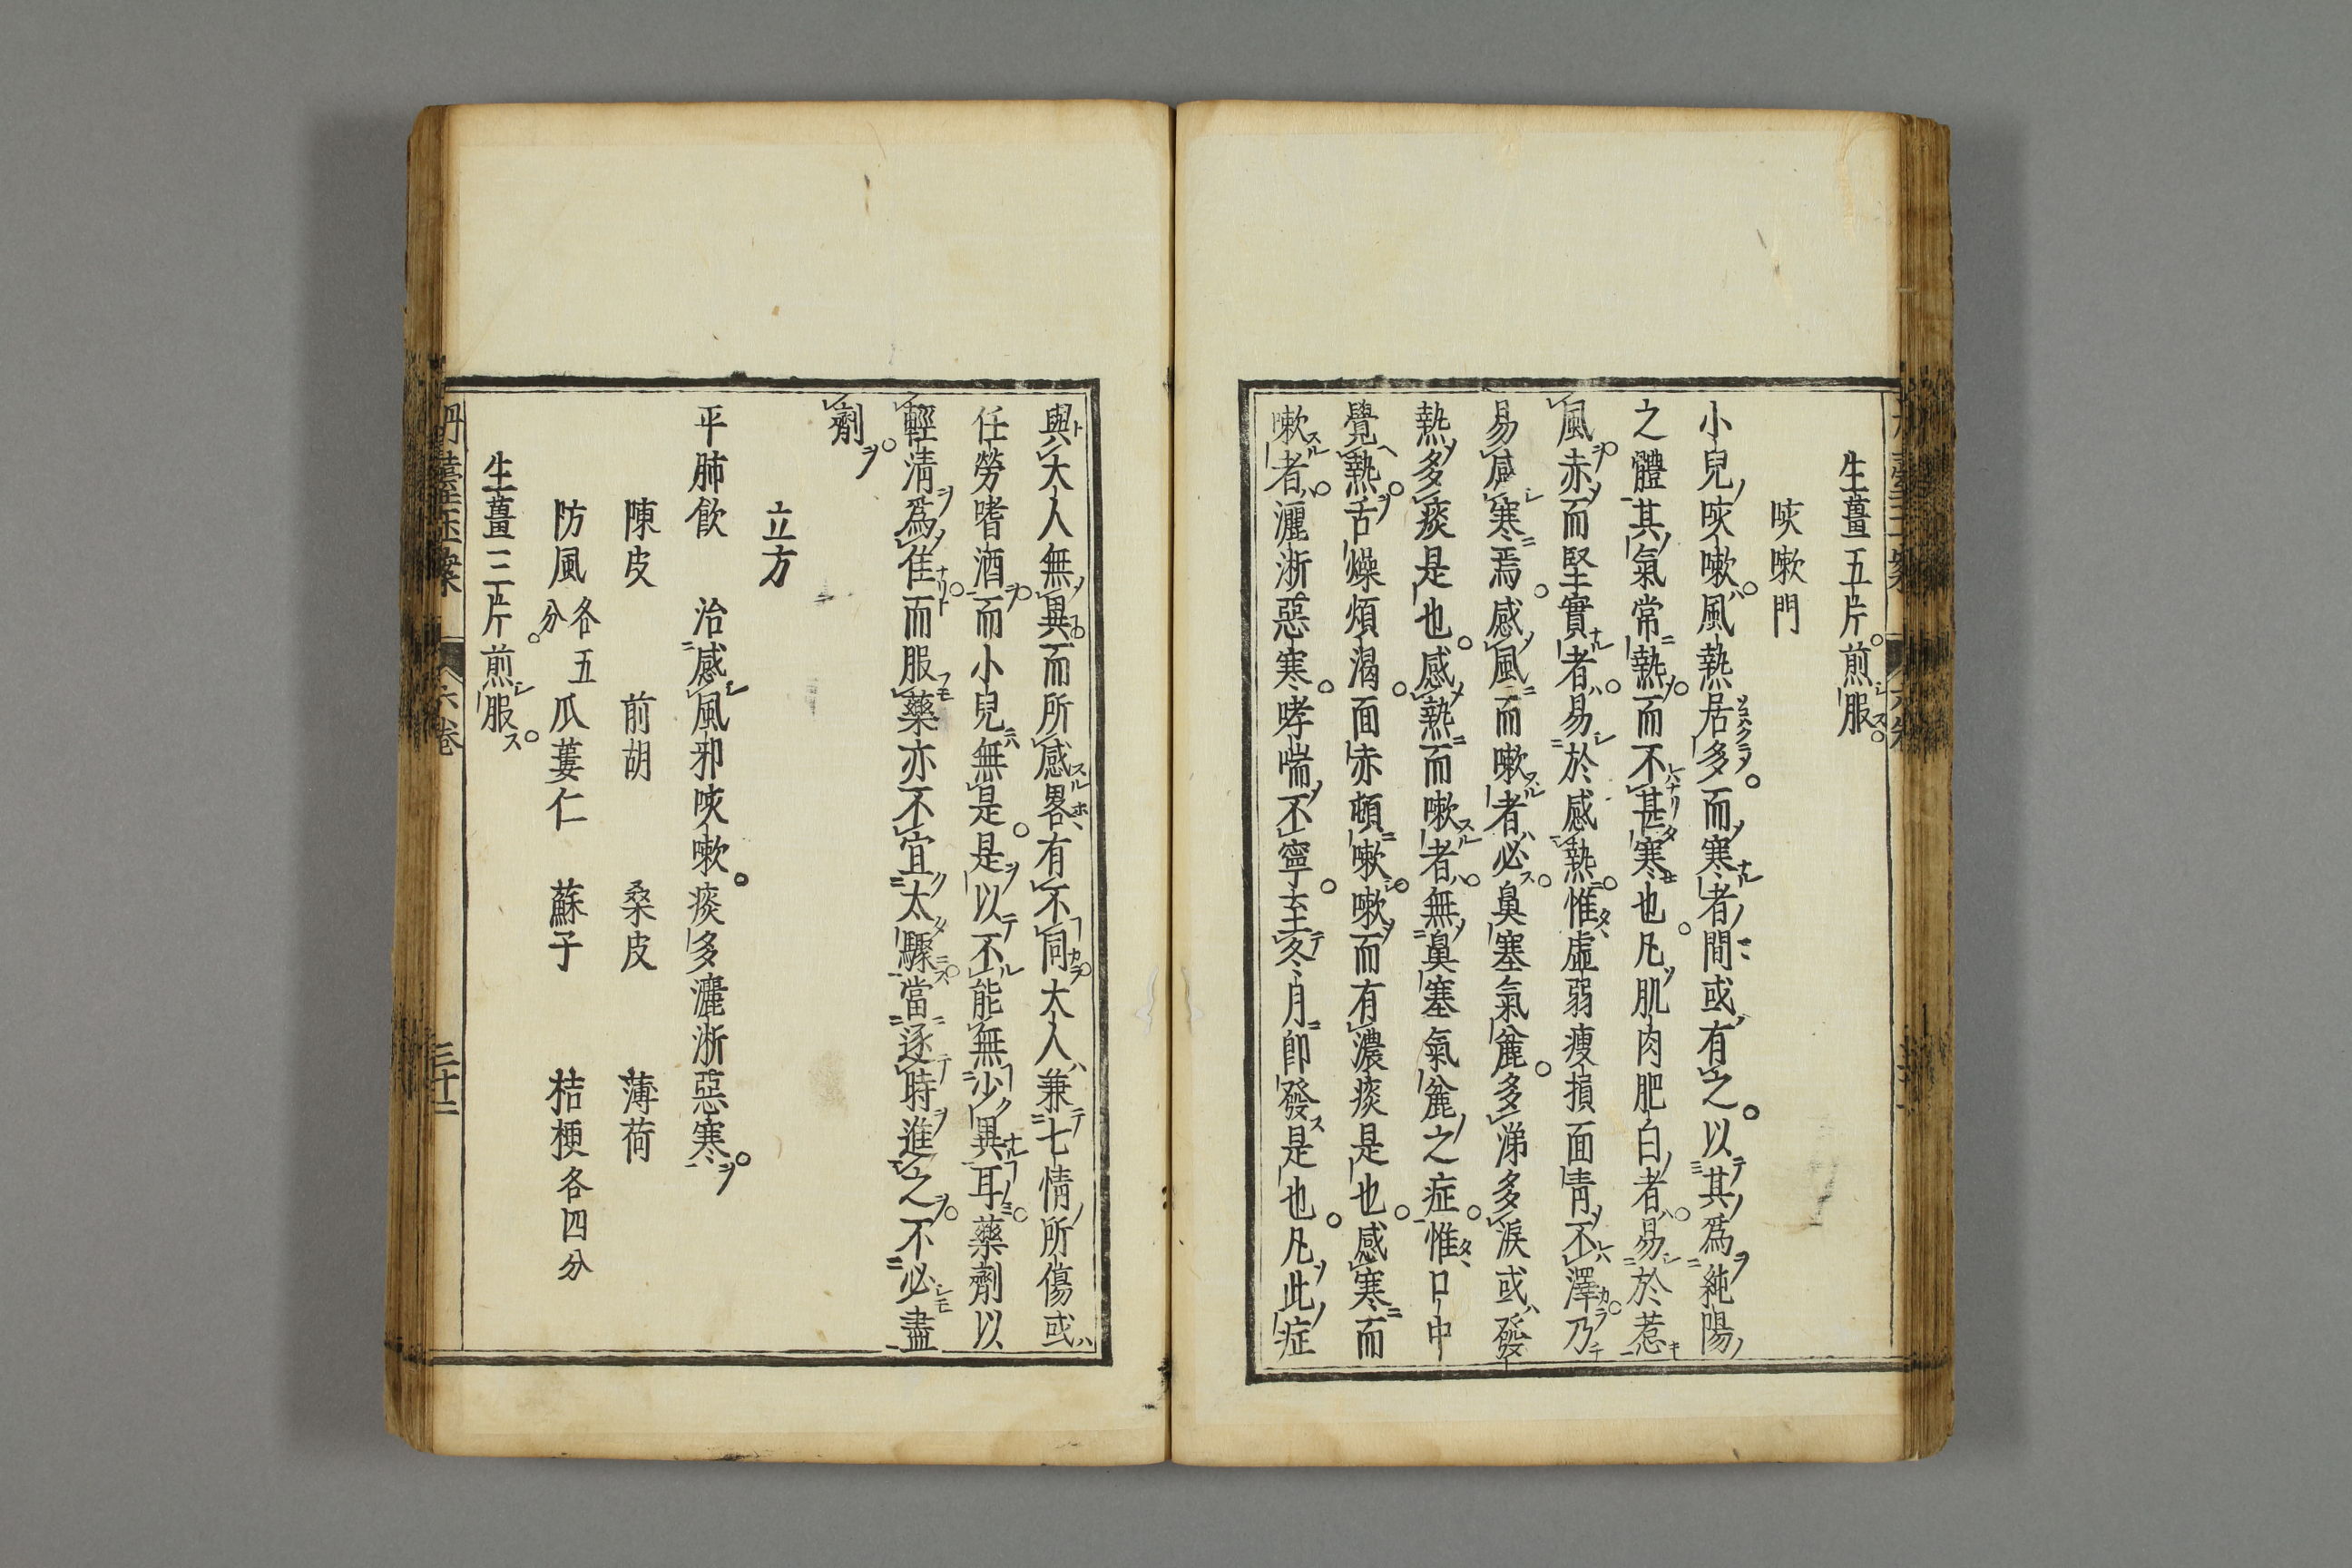 生薑五片煎服
咳嗽門
小兒咳嗽風熱居多而寒者間或有之以其爲純陽
之體其氣常熱而不甚寒也凡肌肉肥白者易於惹
風赤而堅實者易於感熱惟虛弱瘦損面靑不澤乃
易感寒焉感風而嗽者必鼻塞氣麄多涕多淚或發
熱多痰是也感熱而嗽者無鼻塞氣麄之症惟口中
覺熱舌燥煩渴面赤頓嗽嗽而有濃痰是也感寒而
嗽者灑淅惡寒哮喘不寧至冬月卽發是也凡此症
與大人無異而所感畧有不同大人兼七情所傷或
任勞嗜酒而小兒無是是以不能無少異耳藥劑以
輕淸爲佳而服藥亦不宜太驟當逐時進之不必盡
劑
立方
平肺飮　治感風邪咳嗽痰多灑淅惡寒
陳皮　前胡　桑皮　薄荷
防風各五分　瓜蔞仁　蘇子　桔梗各四分
生薑三片煎服
丹臺玉案　六卷　三十二